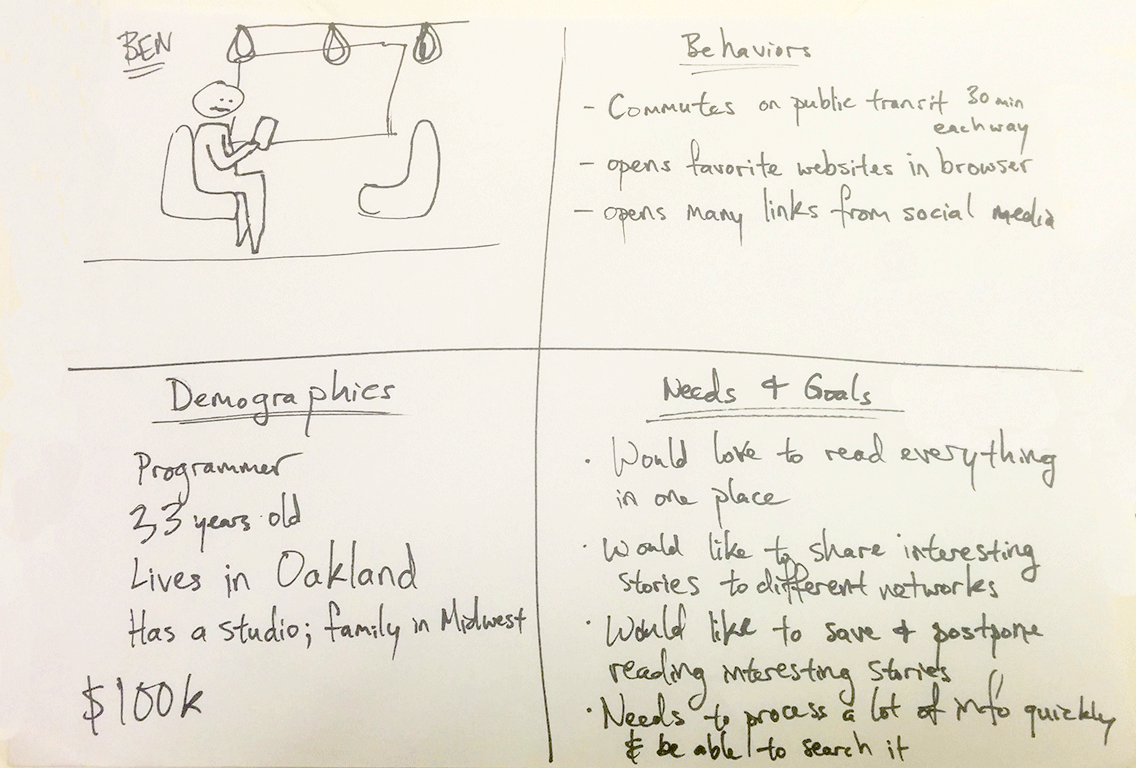 BEN
Behaviors
- Commutes on public transit 30 min
each way
- opens favorite websites in browser
- opens many links from social media
Demographics
Programmer
33 years old
Lives in Oakland
Has a studio; family in Midwest
$100k
Needs & Goals
· Would love to read everything
in one place
· Would like to share interesting
stories to different networks
· Would like to save & postpone
reading interesting stories
· Needs to process a lot of info quickly
& be able to search it